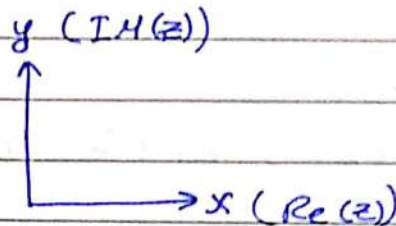 y (IM(z))
x (Re(z))